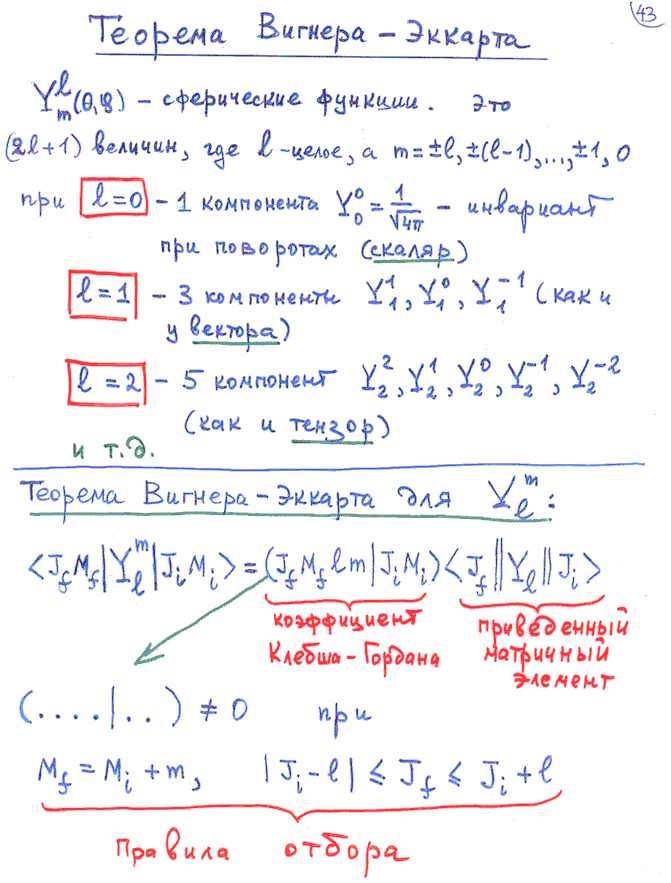 43
Теорема Вигнера – Эккарта
Yₘˡ(θ,φ) – сферические функции. это
(2l+1) величин, где l-целое, а m=±l,±(l-1),...,±1,0
при l=0 – 1 компонента Y₀⁰ = 1/√4π – инвариант
при поворотах (скаляр)
l=1 – 3 компоненты Y₁¹, Y₁⁰, Y₁⁻¹ (как и
у вектора)
l=2 – 5 компонент Y₂², Y₂¹, Y₂⁰, Y₂⁻¹, Y₂⁻²
(как и тензор)
и т.д.
Теорема Вигнера – Эккарта для Yₗᵐ:
<J_f M_f|Yₗᵐ|J_i M_i> = (J_f M_f l m|J_i M_i)<J_f||Yₗ||J_i>
коэффициент
Клебша-Гордана
приведенный
матричный
элемент
(....|..) ≠ 0 при
M_f = M_i + m, |J_i - l| ≤ J_f ≤ J_i + l
Правила отбора